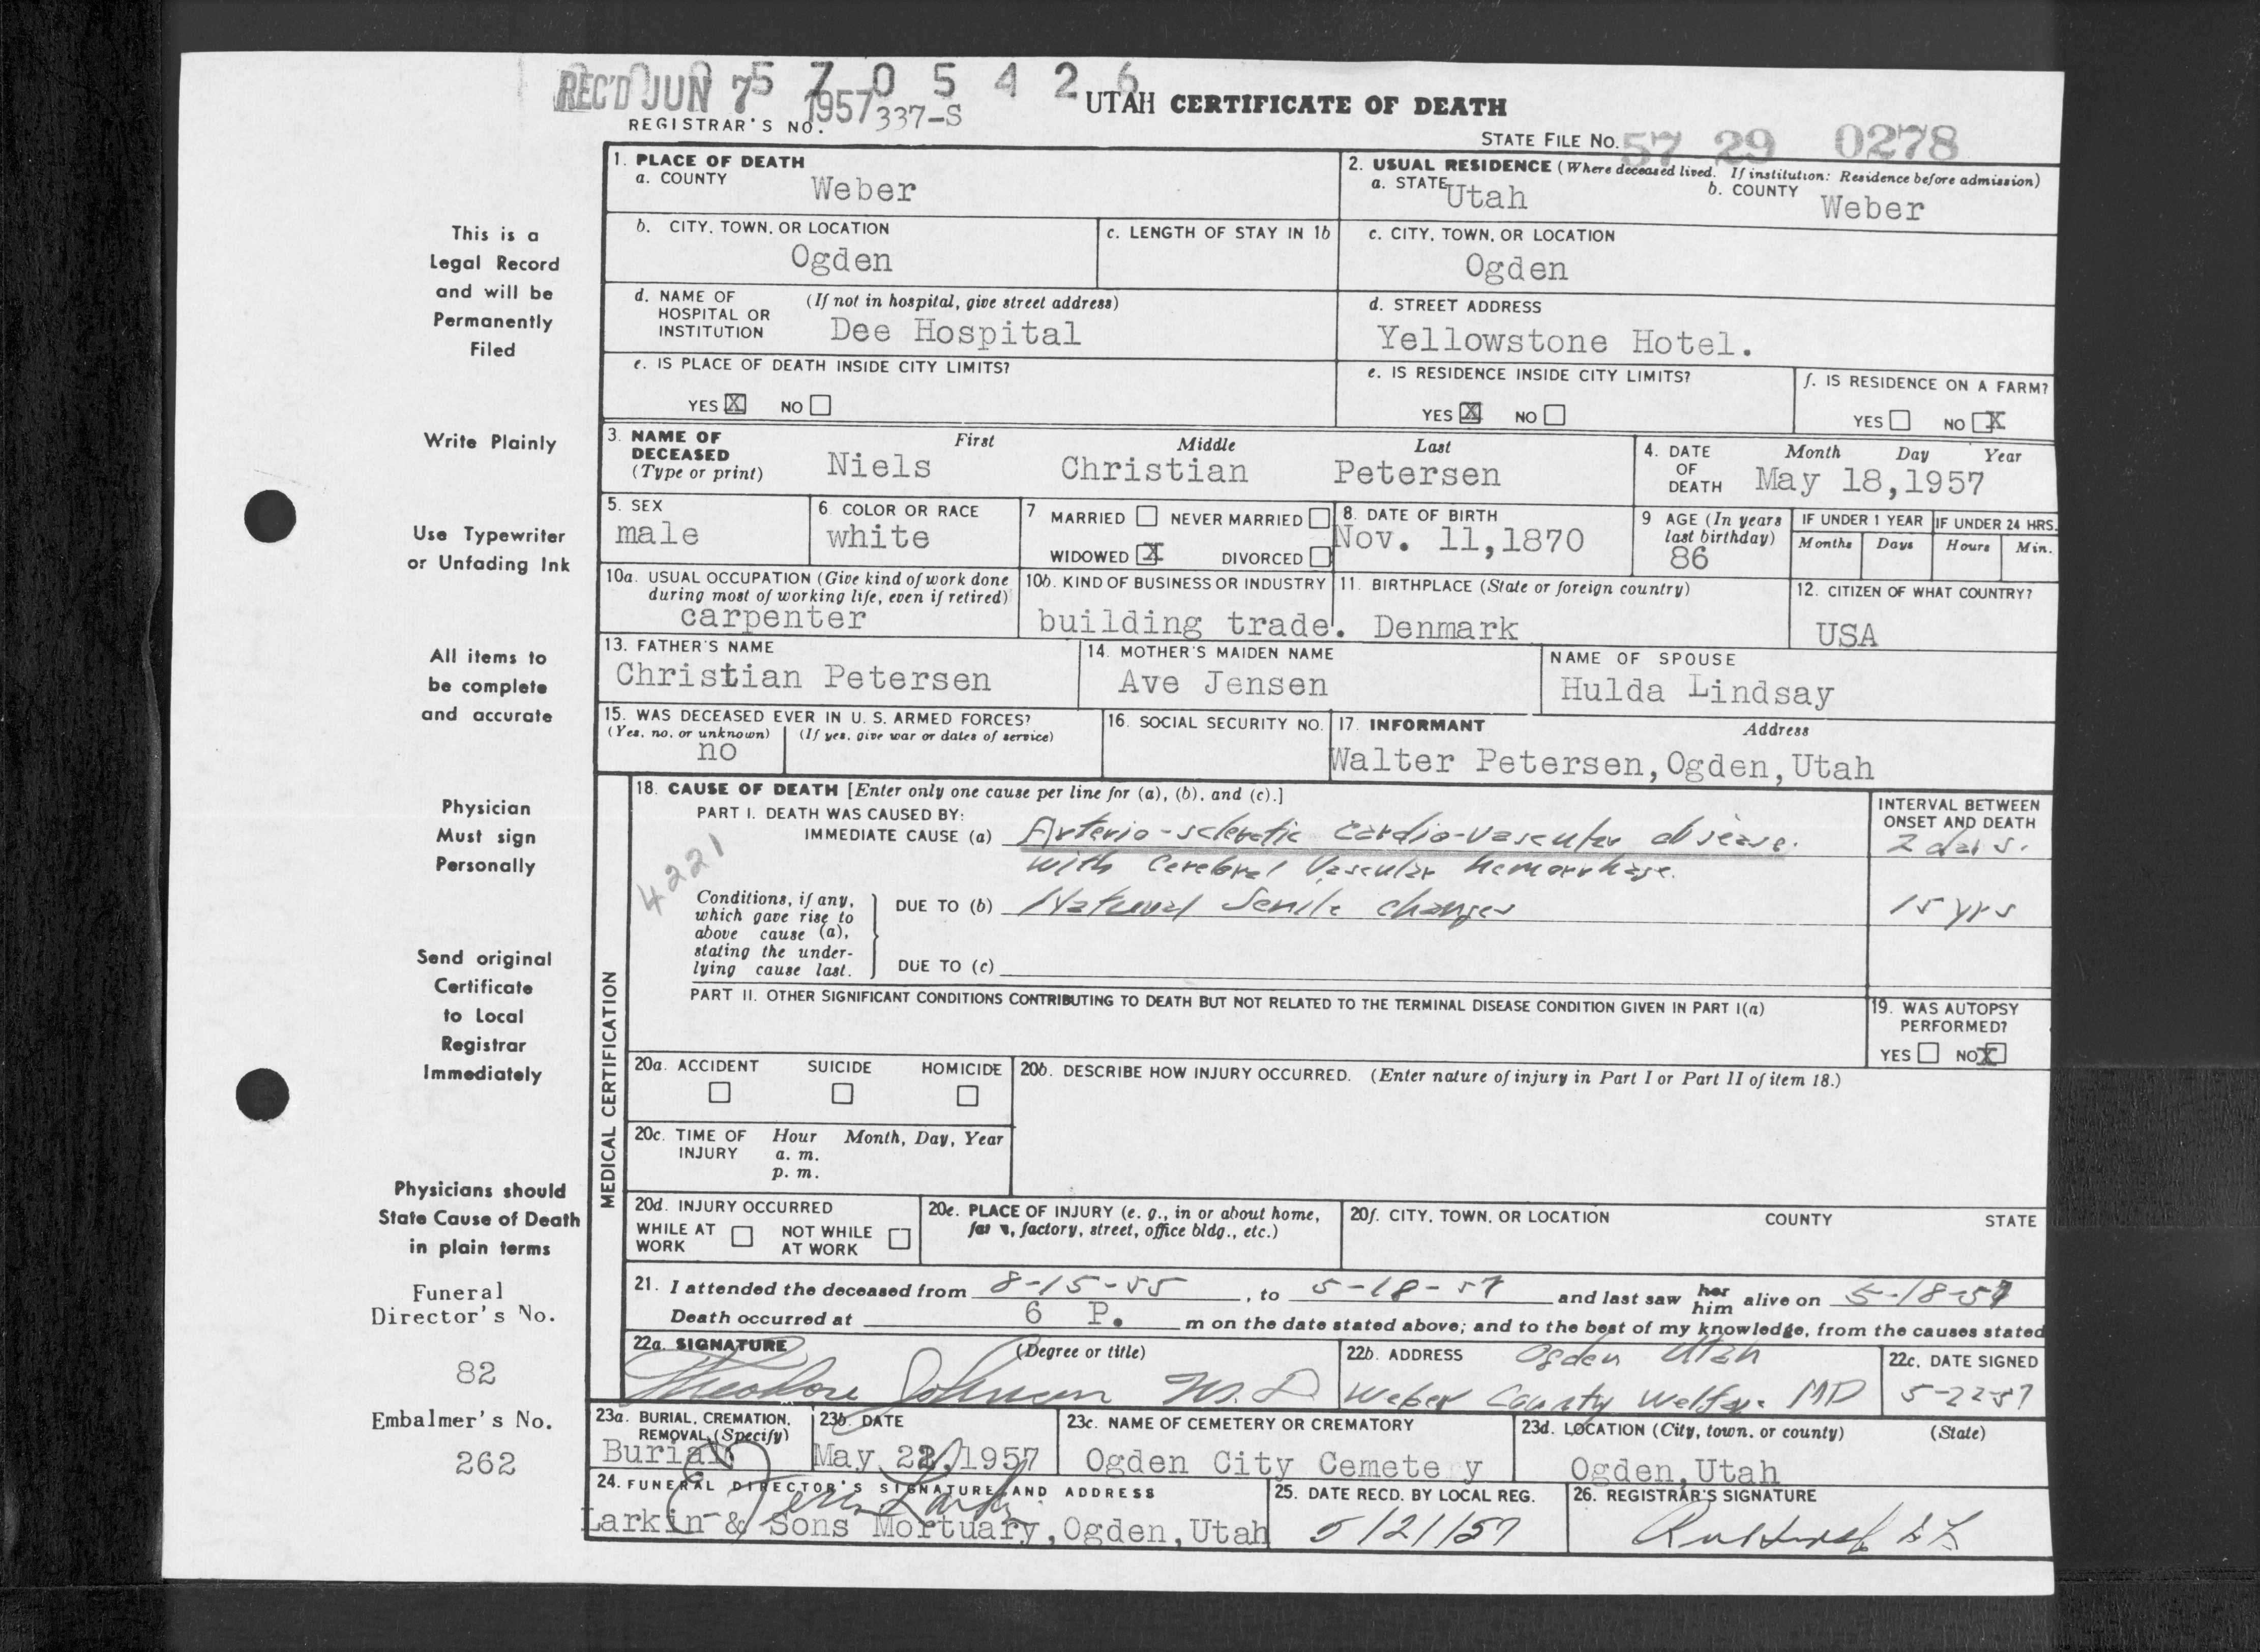 REC'D JUN 7 1957
5 7 0 5 4 2 6
REGISTRAR'S NO. 337-S
UTAH CERTIFICATE OF DEATH
STATE FILE NO. 57 29 0278
This is a
Legal Record
and will be
Permanently
Filed
Write Plainly
Use Typewriter
or Unfading Ink
All items to
be complete
and accurate
Physician
Must sign
Personally
Send original
Certificate
to Local
Registrar
Immediately
Physicians should
State Cause of Death
in plain terms
Funeral
Director's No.
82
Embalmer's No.
262
1. PLACE OF DEATH
a. COUNTY Weber
2. USUAL RESIDENCE (Where deceased lived. If institution: Residence before admission)
a. STATE Utah b. COUNTY Weber
b. CITY, TOWN, OR LOCATION
Ogden
c. LENGTH OF STAY IN 1b
c. CITY, TOWN, OR LOCATION
Ogden
d. NAME OF HOSPITAL OR INSTITUTION (If not in hospital, give street address)
Dee Hospital
d. STREET ADDRESS
Yellowstone Hotel.
e. IS PLACE OF DEATH INSIDE CITY LIMITS?
YES X NO
e. IS RESIDENCE INSIDE CITY LIMITS?
YES X NO
f. IS RESIDENCE ON A FARM?
YES NO X
3. NAME OF DECEASED (Type or print)
First Middle Last
Niels Christian Petersen
4. DATE OF DEATH Month Day Year
May 18,1957
5. SEX
male
6 COLOR OR RACE
white
7 MARRIED NEVER MARRIED
WIDOWED X DIVORCED
8. DATE OF BIRTH
Nov. 11,1870
9 AGE (In years last birthday)
86
IF UNDER 1 YEAR
Months Days
IF UNDER 24 HRS.
Hours Min.
10a. USUAL OCCUPATION (Give kind of work done
during most of working life, even if retired)
carpenter
10b. KIND OF BUSINESS OR INDUSTRY
building trade.
11. BIRTHPLACE (State or foreign country)
Denmark
12. CITIZEN OF WHAT COUNTRY?
USA
13. FATHER'S NAME
Christian Petersen
14. MOTHER'S MAIDEN NAME
Ave Jensen
NAME OF SPOUSE
Hulda Lindsay
15. WAS DECEASED EVER IN U. S. ARMED FORCES?
(Yes, no, or unknown) (If yes, give war or dates of service)
no
16. SOCIAL SECURITY NO.
17. INFORMANT Address
Walter Petersen,Ogden,Utah
MEDICAL CERTIFICATION
18. CAUSE OF DEATH [Enter only one cause per line for (a), (b), and (c).]
PART I. DEATH WAS CAUSED BY:
IMMEDIATE CAUSE (a) Arterio-sclerotic cardio-vascular disease.
with Cerebral Vascular hemorrhage.
4221
INTERVAL BETWEEN
ONSET AND DEATH
2 days.
Conditions, if any,
which gave rise to
above cause (a),
stating the under-
lying cause last.
DUE TO (b) Natural Senile changes
15 yrs
DUE TO (c)
PART II. OTHER SIGNIFICANT CONDITIONS CONTRIBUTING TO DEATH BUT NOT RELATED TO THE TERMINAL DISEASE CONDITION GIVEN IN PART I(a)
19. WAS AUTOPSY
PERFORMED?
YES NO X
20a. ACCIDENT SUICIDE HOMICIDE
20b. DESCRIBE HOW INJURY OCCURRED. (Enter nature of injury in Part I or Part II of item 18.)
20c. TIME OF INJURY Hour Month, Day, Year
a. m.
p. m.
20d. INJURY OCCURRED
WHILE AT WORK NOT WHILE AT WORK
20e. PLACE OF INJURY (e. g., in or about home,
farm, factory, street, office bldg., etc.)
20f. CITY, TOWN, OR LOCATION COUNTY STATE
21. I attended the deceased from 8-15-55, to 5-18-57 and last saw her him alive on 5-18-57
Death occurred at 6 P. m on the date stated above; and to the best of my knowledge, from the causes stated
22a. SIGNATURE (Degree or title)
Theodore Johnson M.D
22b. ADDRESS Ogden Utah
Weber County Welfare MD
22c. DATE SIGNED
5-22-57
23a. BURIAL, CREMATION,
REMOVAL (Specify)
Burial
23b. DATE
May 22,1957
23c. NAME OF CEMETERY OR CREMATORY
Ogden City Cemete y
23d. LOCATION (City, town, or county) (State)
Ogden,Utah
24. FUNERAL DIRECTOR'S SIGNATURE AND ADDRESS
Larkin & Sons Mortuary,Ogden,Utah
25. DATE RECD. BY LOCAL REG.
5/21/57
26. REGISTRAR'S SIGNATURE